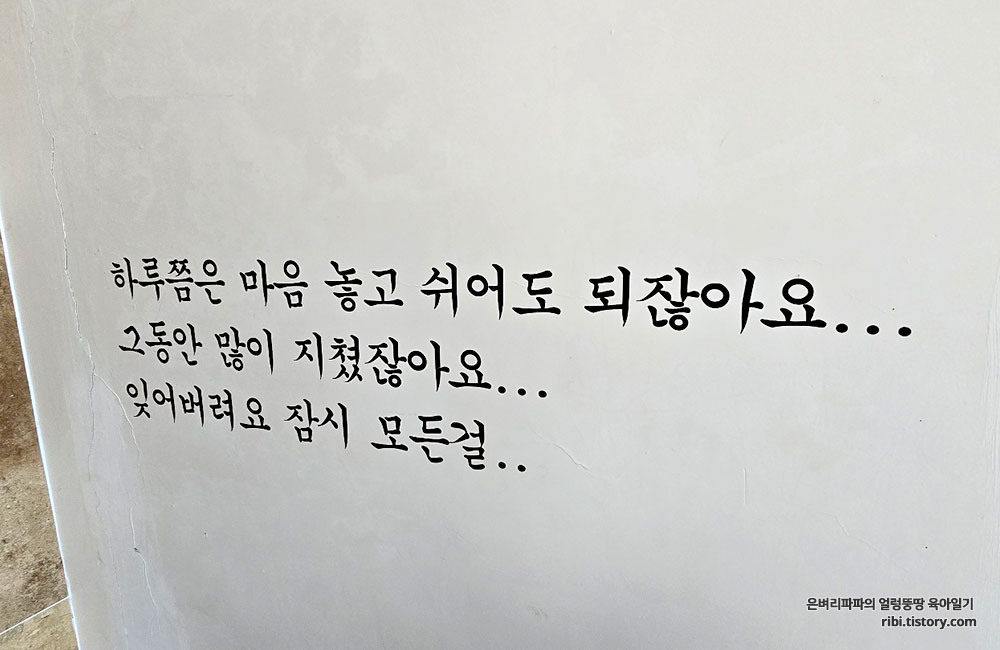 하루쯤은 마음 놓고 쉬어도 되잖아요...
그동안 많이 지쳤잖아요...
잊어버려요 잠시 모든걸..
은벼리파파의 얼렁뚱땅 육아일기
ribi.tistory.com